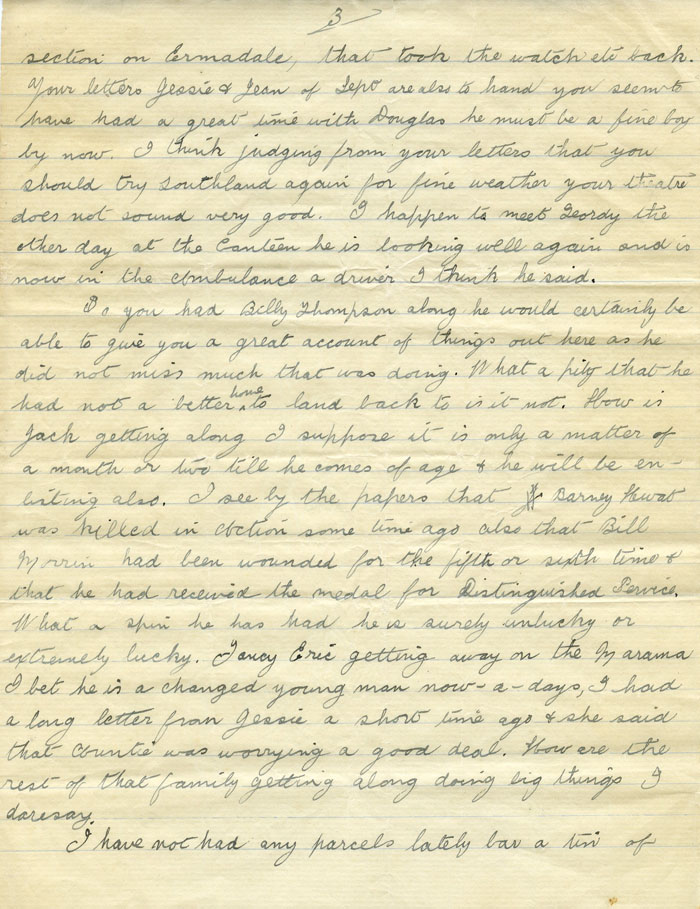 3
section on Ermadale, that took the watch etc back.
Your letters Jessie & Jean of Sept are also to hand you seem to
have had a great time with Douglas he must be a fine boy
by now. I think judging from your letters that you
should try Southland again for fine weather your theatre
does not sound very good. I happen to meet Geordy the
other day at the Canteen he is looking well again and is
now in the Ambulance a driver I think he said.
So you had Billy Thompson along he would certainly be
able to give you a great account of things out here as he
did not miss much that was doing. What a pity that he
had not a better home to land back to is it not. How is
Jack getting along I suppose it is only a matter of
a month or two till he comes of age & he will be en-
listing also. I see by the papers that Barney Howat
was killed in Action some time ago also that Bill
Morrin had been wounded for the fifth or sixth time &
that he had received the medal for Distinguished Service.
What a spin he has had he is surely unlucky or
extremely lucky. Fancy Eric getting away on the Marama
I bet he is a changed young man now-a-days, I had
a long letter from Jessie a short time ago & she said
that Auntie was worrying a good deal. How are the
rest of that family getting along doing big things I
daresay.
I have not had any parcels lately bar a tin of